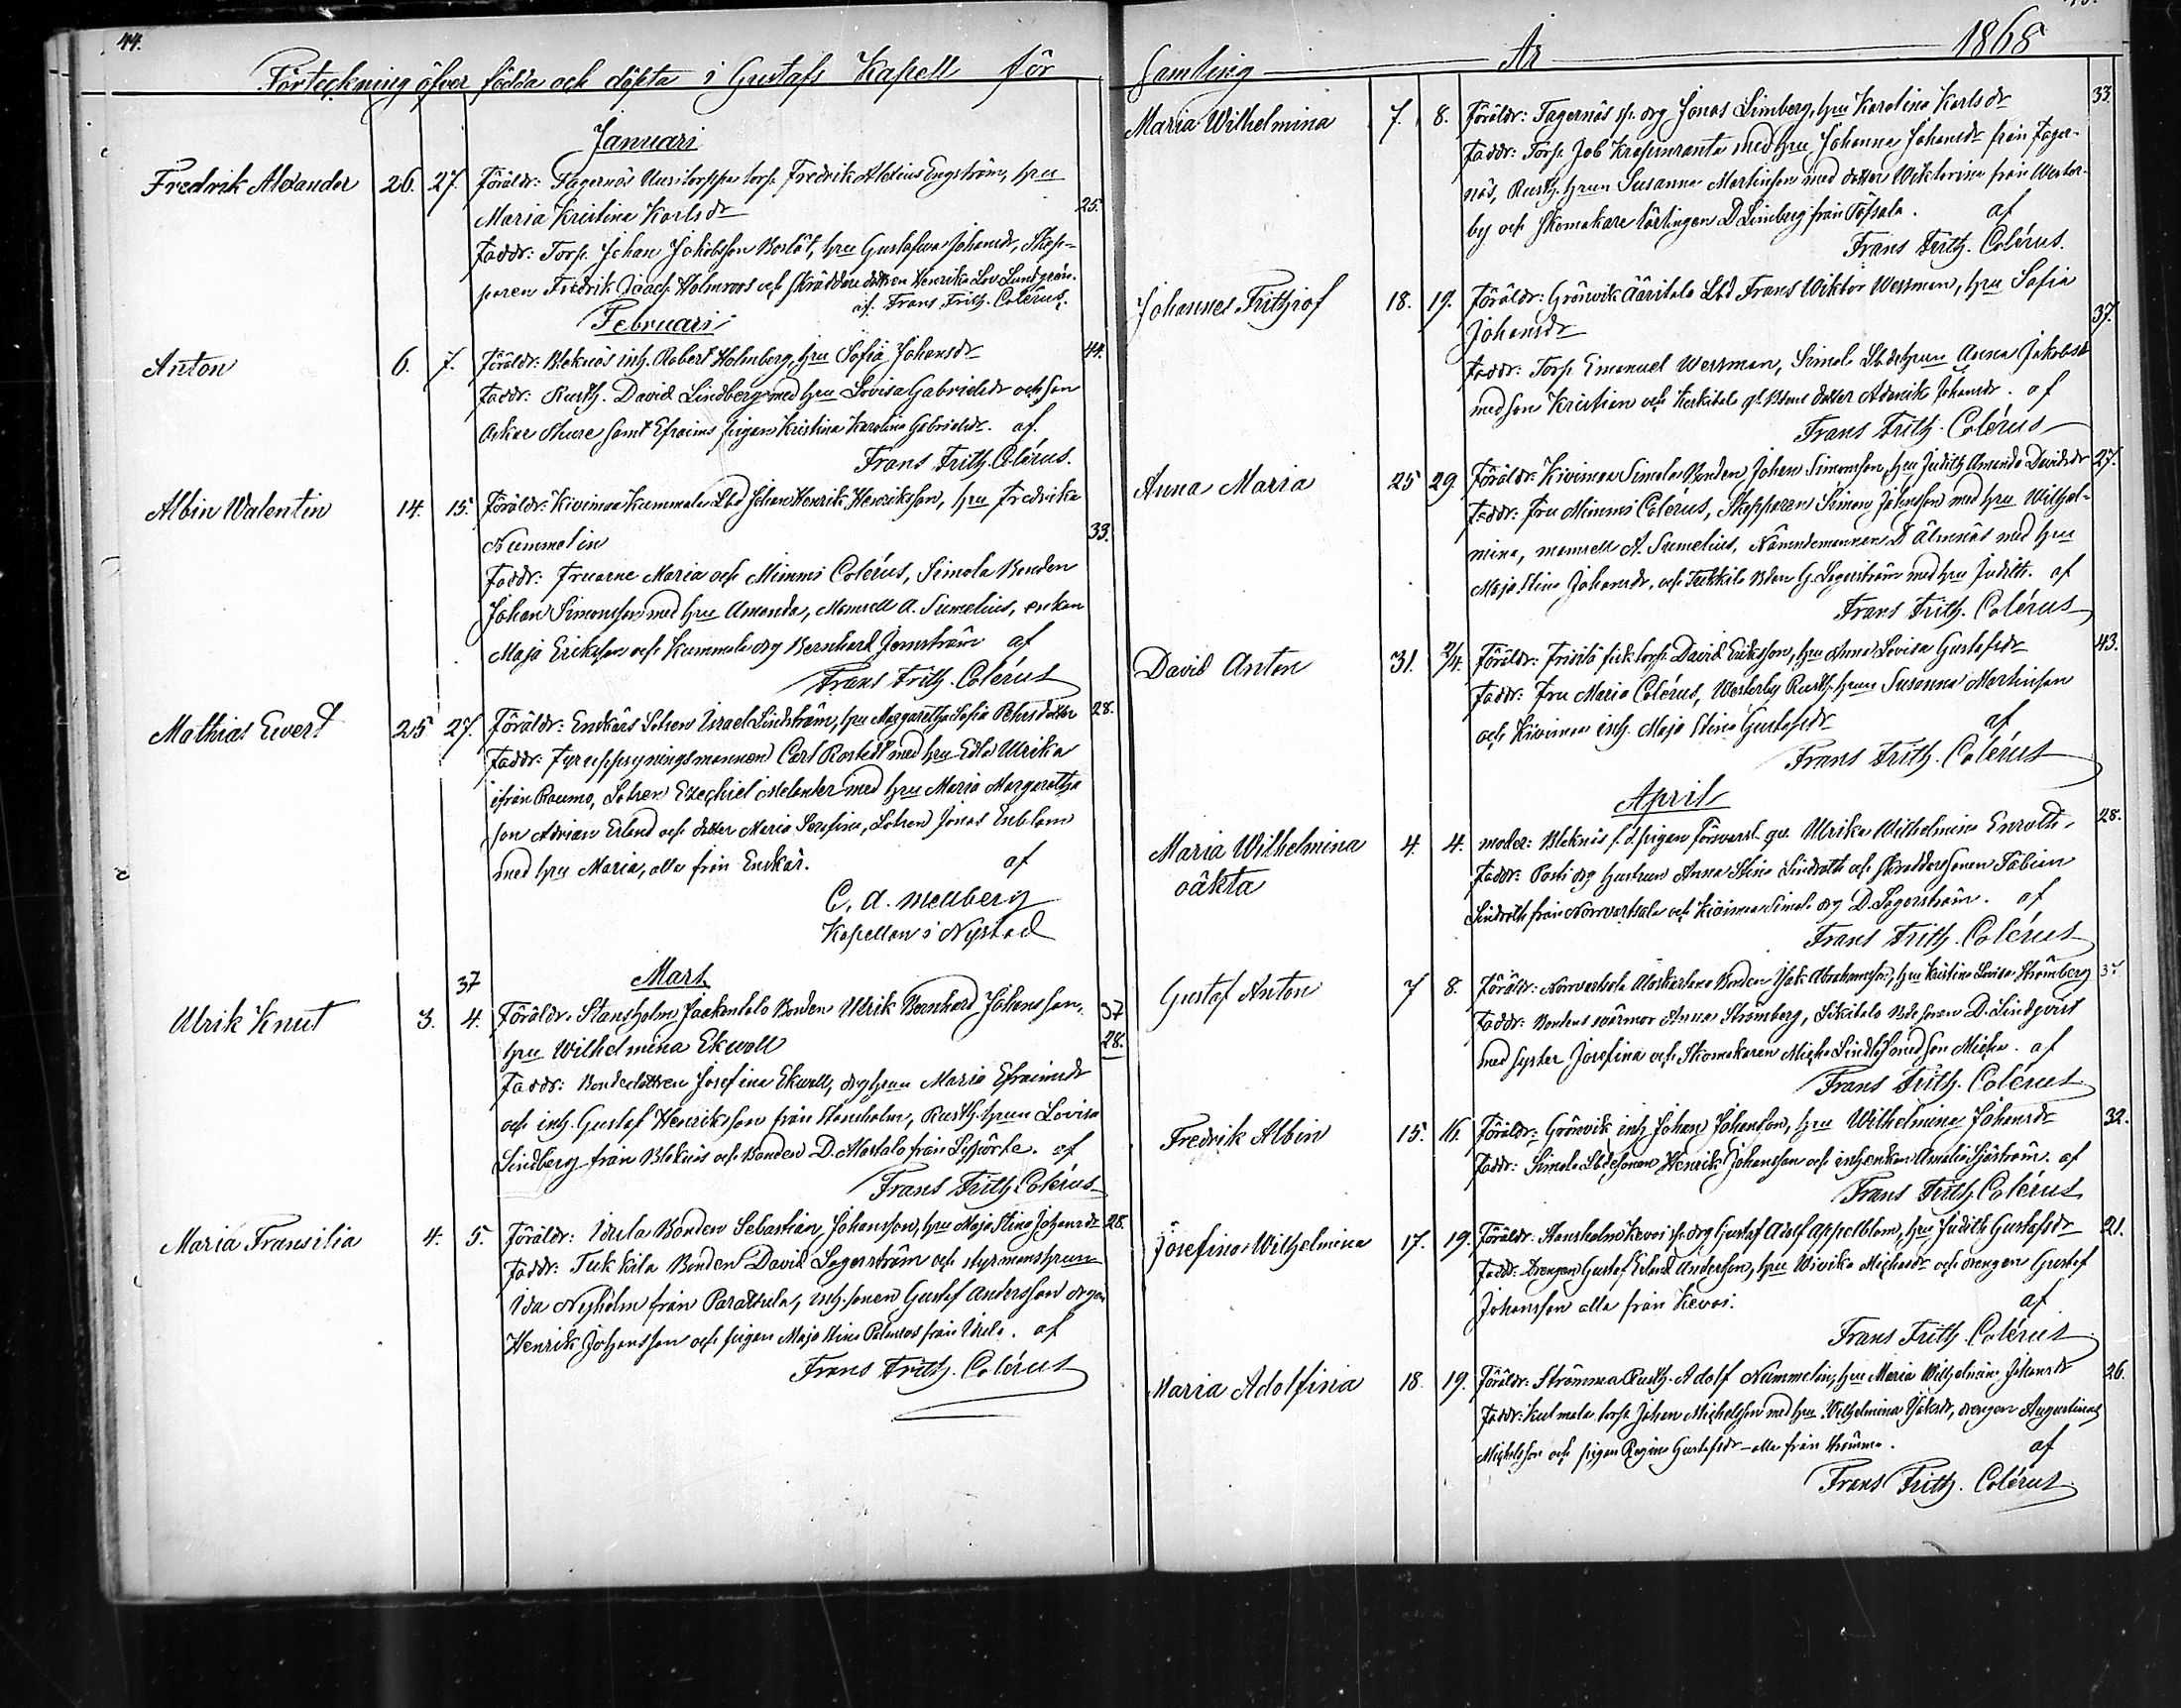 44.
Förteckning öfver födda och döpta i Gustafs Kapell för
Januari
Fredrik Alexander 26. 27. Föräldr: Fagernäs Uusitorppa torp. Fredrik Alexius Engström, hru
Maria Kristina Karlsdr 25.
Faddr: Torp. Johan Jakobsson, hru Gustafva Johansdr, Skep-
paren Fredrik Isaac Holmroos och Skräddaredottren Henrika Lov. Lundgrén.
af. Frans Frith. Colérus.
Februari
Anton 6. 7. Föräldr: Bleknäs inh. Robert Holmberg, hru Sofia Johansdr 44.
Faddr: Rusth. David Lindberg med hru Lovisa Gabrielsdr och son
Oskar Sture samt Efraims pigan Kristina Karolina Gabrielsdr. af.
Frans Frith. Colérus.
Albin Walentin 14. 15. Föräldr: Kivimaa Kummala Lbd Johan Henrik Henriksson, hru Fredrika
Nummelin 33.
Faddr: Fruarne Maria och Mimmi Colérus, Simola Bonden
Johan Simonsson med hru Amanda, Mamsell A. Sumelius, enkan
Maja Eriksson och Kummala drg Bernhard Jernström af
Frans Frith. Colérus
Mathias Evert 25 27. Föräldr: Enskärs Lotsen Israel Lindström, hru Margaretha Sofia Pehrsdotter 28.
Faddr: Fyruppsyningsmannen Carl Rostedt med hru Edla Ulrika
ifrån Raumo, Lotsen Ezechiel Melender med hru Maria Margaretha
son Adrian Erland och dotter Maria Serafina, Lotsen Jonas Enblom
med hru Maria, alla från Enskär. af
C. A. Mellberg
Kapellan i Nystad
37 Mars
Ulrik Knut 3. 4. Föräldr. Stansholm Jaakentalo Bonden Ulrik Bernhard Johansson, 37
hru Wilhelmina Ekwall 28.
Faddr: Bondedottren Josefina Ekwall, drghrun Maria Efraimsdr
och inh. Gustaf Henriksson från Stansholm, Rusth.hrun Lovisa
Lindberg från Bleknäs och Bonden D. Alastalo från af
Frans Frith Colérus
Maria Fransilia 4. 5. Föräldr: Isula Bonden Sebastian Johansson, hru Maja Stina Johansdr 28.
Faddr: Tukkila Bonden David Lagerström och styrmanshrun
Ida Nyholm från Parattula, inh. sonen Gustaf Andersson drgn
Henrik Johansson och pigan Maja Stina från Isula. af
Frans Frith. Colérus
Samling År 1868
Maria Wilhelmina 7. 8. Föräldr: Fagernäs sp. drg Jonas Limberg, hru Karolina Karlsdr 33.
Faddr: Torp. Job Krapinranta med hru Johanna Johansdr från Fager-
näs, Rusth.hrun Susanna Martinson med dotter Wiktorina från Wester-
by och Skomakare lärlingen D Limberg från Töfsala. af
Frans Frith. Colérus.
Johannes Frithjof 18. 19. Föräldr: Grönvik Ääritalo Lbd Frans Wiktor Wessman, hru Sofia
Johansdr 37.
Faddr: Torp. Emanuel Wessman, Simola Lbdshrun Anna Jakobsdr
med son Kristian och Keskitalo gl. Bdens dotter Johansdr. af
Frans Frith. Colérus
Anna Maria 25 29 Föräldr: Kivimaa Simola Bonden Johan Simonsson, hru Judith Amanda Davidsdr 27.
Faddr: Fru Mimmi Colérus, Skepparen Simon Johansson med hru Wilhel-
mina, mamsell A. Sumelius, Nämndemannen D Älmnäs med hru
Maja Stina Johansdr, och Tukkila Bden G. Lagerström med hru Judith. af
Frans Frith. Colérus
David Anton 31. 2/4. Föräldr: Friisilä fisk torp. David Eriksson, hru Anna Lovisa Gustafsdr 43.
Faddr: Fru Maria Colérus, Westerby Rusth.hrun Susanna Martinson
och Kivimaa inh. Maja Stina Gustafsdr af
Frans Frith. Colérus
April
Maria Wilhelmina 4. 4. moder: Bleknäs f.d. pigan Försvarsl. qu. Ulrika Wilhelmina Enroth. 28.
oäkta Faddr: Posti drg hustrun Anna Stina Lindroth och Skräddaresonen Fabian
Lindroth från Norrvartsala och Kivimaa Simola drg D. Lagerström. af
Frans Frith. Colérus
Gustaf Anton 7 8. Föräldr: Norrvartsala Bonden Isak Abrahamsson, hru Kristina Lovisa Strömberg 37
Faddr: Bondens svärmor Anna Strömberg, Sikitalo Bdesonen D. Lindqvist
med syster Josefina och Skomakaren Micke Lindlöf med son Micke. af
Frans Frith. Colérus
Fredrik Albin 15. 16. Föräldr: Grönvik inh Johan Johansson, hru Wilhelmina Johansdr 32.
Faddr: Simola Lbdesonen Henrik Johansson och inh.enkan Amalia Sjöström. af
Frans Frith Colérus
Josefina Wilhelmina 17. 19. Föräldr: Stansholm Kevoi sp. drg Gustaf Adolf Appelblom, hru Judith Gustafsdr 21.
Faddr: Drengen Gustaf Erland Andersson, hru Wivika Michelsdr och drengen Gustaf
Johansson alla från Kevoi. af
Frans Frith. Colérus
Maria Adolfina 18. 19. Föräldr: Strömma Rusth. Adolf Nummelin, hru Maria Wilhelmina Johansdr 26.
Faddr: Kulmala torp. Johan Michelsson med hru Wilhelmina Isaksdr, drengen Augustinus
Michelsson och pigan Regina Gustafsdr - alla från Strömma. af
Frans Frith. Colérus